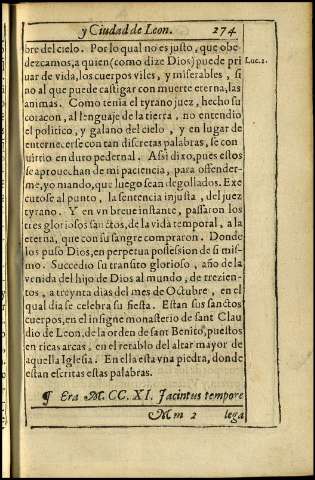 y Ciudad de Leon. 274
bre del cielo. Por lo qual no es justo, que obe
dezcamos, a quien (como dize Dios) puede pri Luc. 2.
uar de vida, los cuerpos viles, y miserables, si
no al que puede castigar con muerte eterna, las
animas. Como tenia el tyrano juez, hecho su
coraçon, al lenguaje de la tierra, no entendio
el politico, y galano del cielo, y en lugar de
enternecerse con tan discretas palabras, se con
uirtio en duro pedernal. Assi dixo, pues estos
se aprouechan de mi paciencia, para offender-
me, yo mando, que luego sean degollados. Exe
cutose al punto, la sentencia injusta, del juez
tyrano. Y en vn breue instante, passaron los
tres gloriosos sanctos, de la vida temporal, a la
eterna, que con su sangre compraron. Donde
los puso Dios, en perpetua possession de si mis-
mo. Succedio su transito glorioso, año de la
venida del hijo de Dios al mundo, de trezien-
tos, a treynta dias del mes de Octubre, en el
qual dia se celebra su fiesta. Estan sus sanctos
cuerpos, en el insigne monasterio de sant Clau
dio de Leon, de la orden de sant Benito, puestos
en ricas arcas, en el retablo del altar mayor de
aquella Iglesia. En ella esta vna piedra, donde
estan escritas estas palabras.
¶ Era M. CC. XI. Jacintus tempore
Mm 2 lega